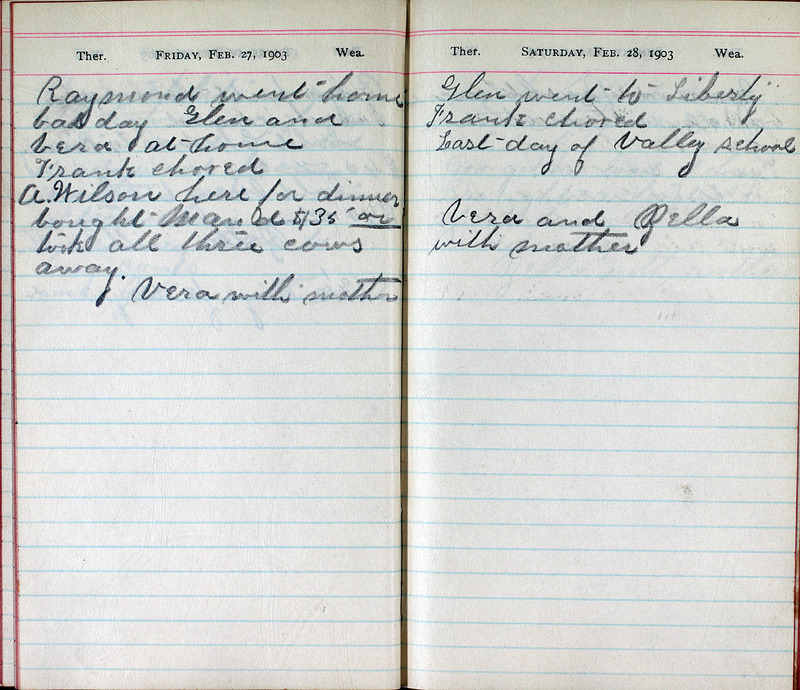 Ther. FRIDAY, FEB. 27, 1903 Wea.
Raymond went home
bad day Glen and
Vera at home
Frank chored
A. Wilson here for dinner
bought Maud $35
took all three cows
away.
Vera with mother
Ther. SATURDAY, FEB. 28, 1903 Wea.
Glen went to Liberty
Frank chored
Last day of Valley school
Vera and Della
with mother